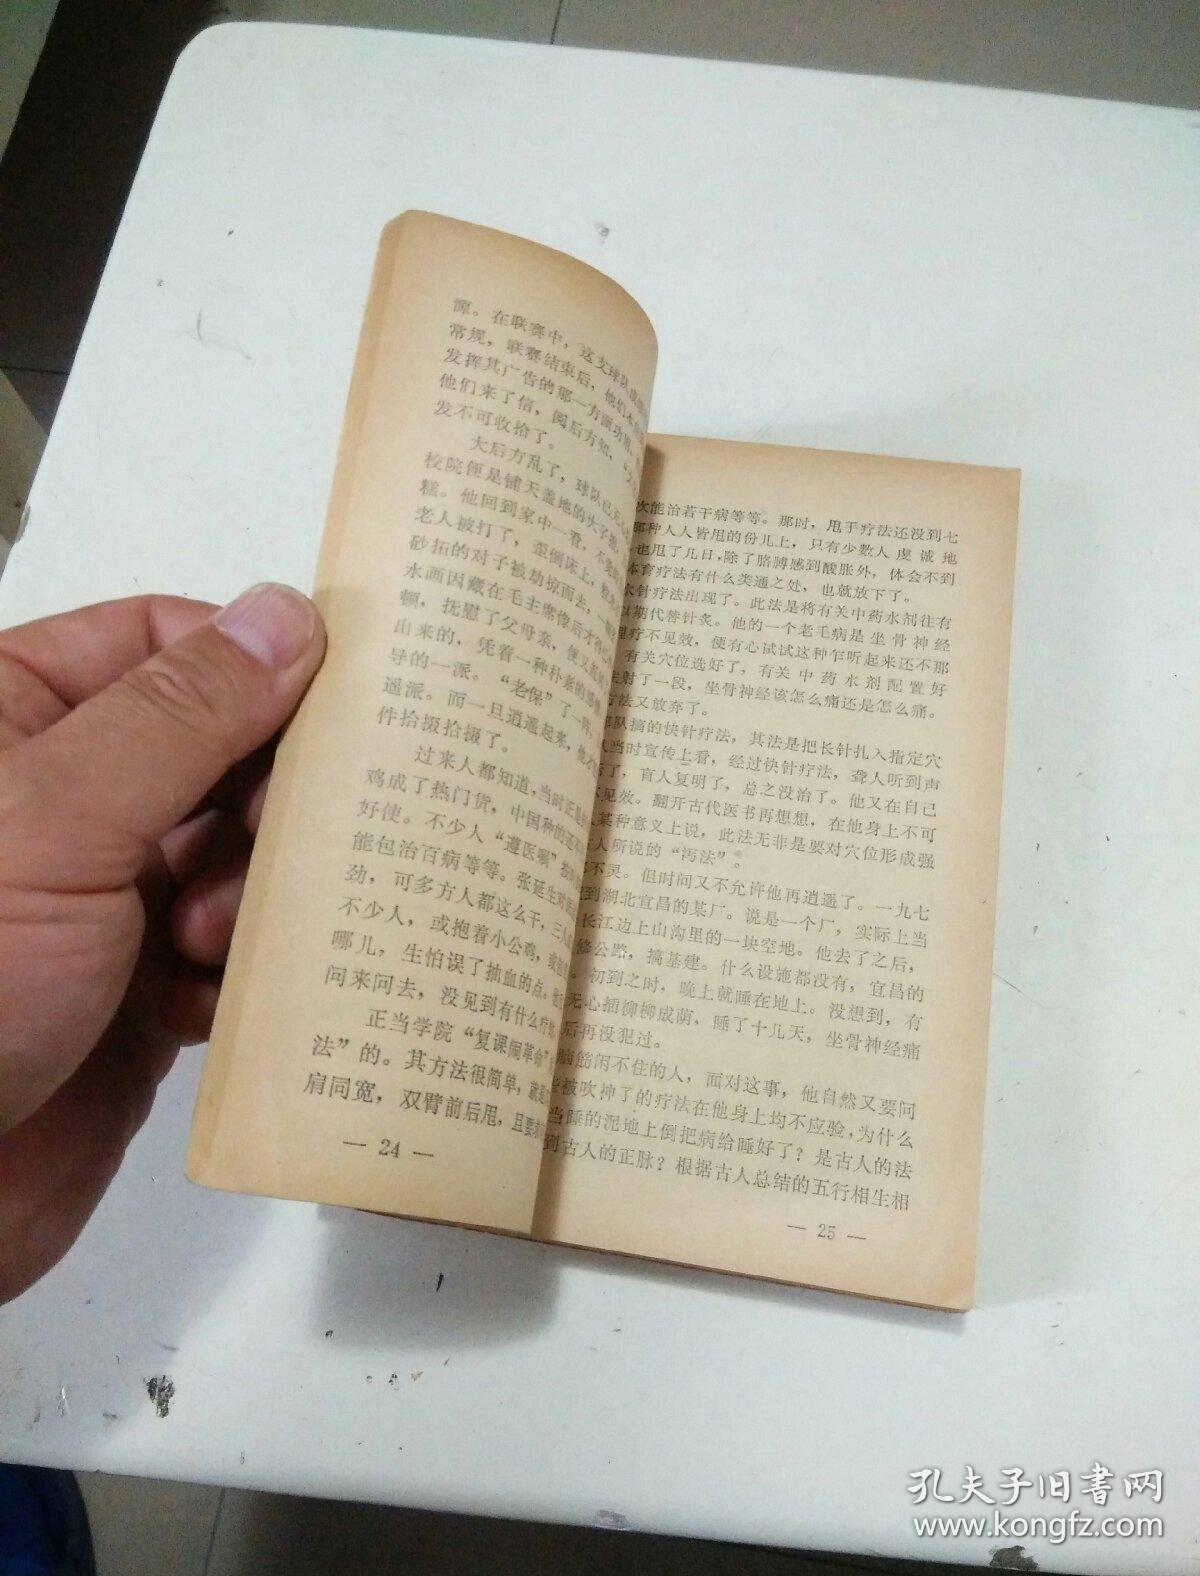 源。在联赛中，这支球队
常规，联赛结束后，他们本
发挥其广告的那一方面功
他们来了信，阅后方知，“
发不可收拾了。
大后方乱了，球队已无
校院便是铺天盖地的大字报
糕。他回到家中一看，不
老人被打了，歪倒床上，
砂拓的对子被劫掠而去，一
水画因藏在毛主席像后才
顿，抚慰了父母亲，便又
出来的，凭着一种朴素的感
导的一派。“老保”了一阵，
遥派。而一旦逍遥起来，他
件拾掇拾掇了。
过来人都知道，当时正是
鸡成了热门货，中国种的还
好使。不少人“遵医嘱”
能包治百病等等。张延生对
劲，可多方人都这么干，三人
不少人，或抱着小公鸡，或
哪儿，生怕误了抽血的点。他
问来问去，没见到有什么疗
正当学院“复课闹革命”
法”的。其方法很简单，就是
肩同宽，双臂前后甩，且要
— 24 —
次能治若干病等等。那时，甩手疗法还没到七
那种人人皆甩的份儿上，只有少数人虔诚地
也甩了几日，除了胳膊感到酸胀外，体会不到
体育疗法有什么类通之处，也就放下了。
水针疗法出现了。此法是将有关中药水剂往有
以期代替针灸。他的一个老毛病是坐骨神经
理疗不见效，便有心试试这种乍听起来还不那
有关穴位选好了，有关中药水剂配置好
注射了一段，坐骨神经该怎么痛还是怎么痛。
方法又放弃了。
部队搞的快针疗法，其法是把长针扎入指定穴
从当时宣传上看，经过快针疗法，聋人听到声
了，盲人复明了，总之没治了。他又在自己
不见效。翻开古代医书再想想，在他身上不可
某种意义上说，此法无非是要对穴位形成强
人所说的“泻法”。
不灵。但时间又不允许他再逍遥了。一九七
到湖北宜昌的某厂。说是一个厂，实际上当
长江边上山沟里的一块空地。他去了之后，
修公路，搞基建。什么设施都没有，宜昌的
初到之时，晚上就睡在地上。没想到，有
无心插柳柳成荫，睡了十几天，坐骨神经痛
后再没犯过。
脑筋闲不住的人，面对这事，他自然又要问
些被吹神了的疗法在他身上均不应验，为什么
当睡的泥地上倒把病给睡好了？是古人的法
到古人的正脉？根据古人总结的五行相生相
— 25 —
孔夫子旧书网
www.kongfz.com